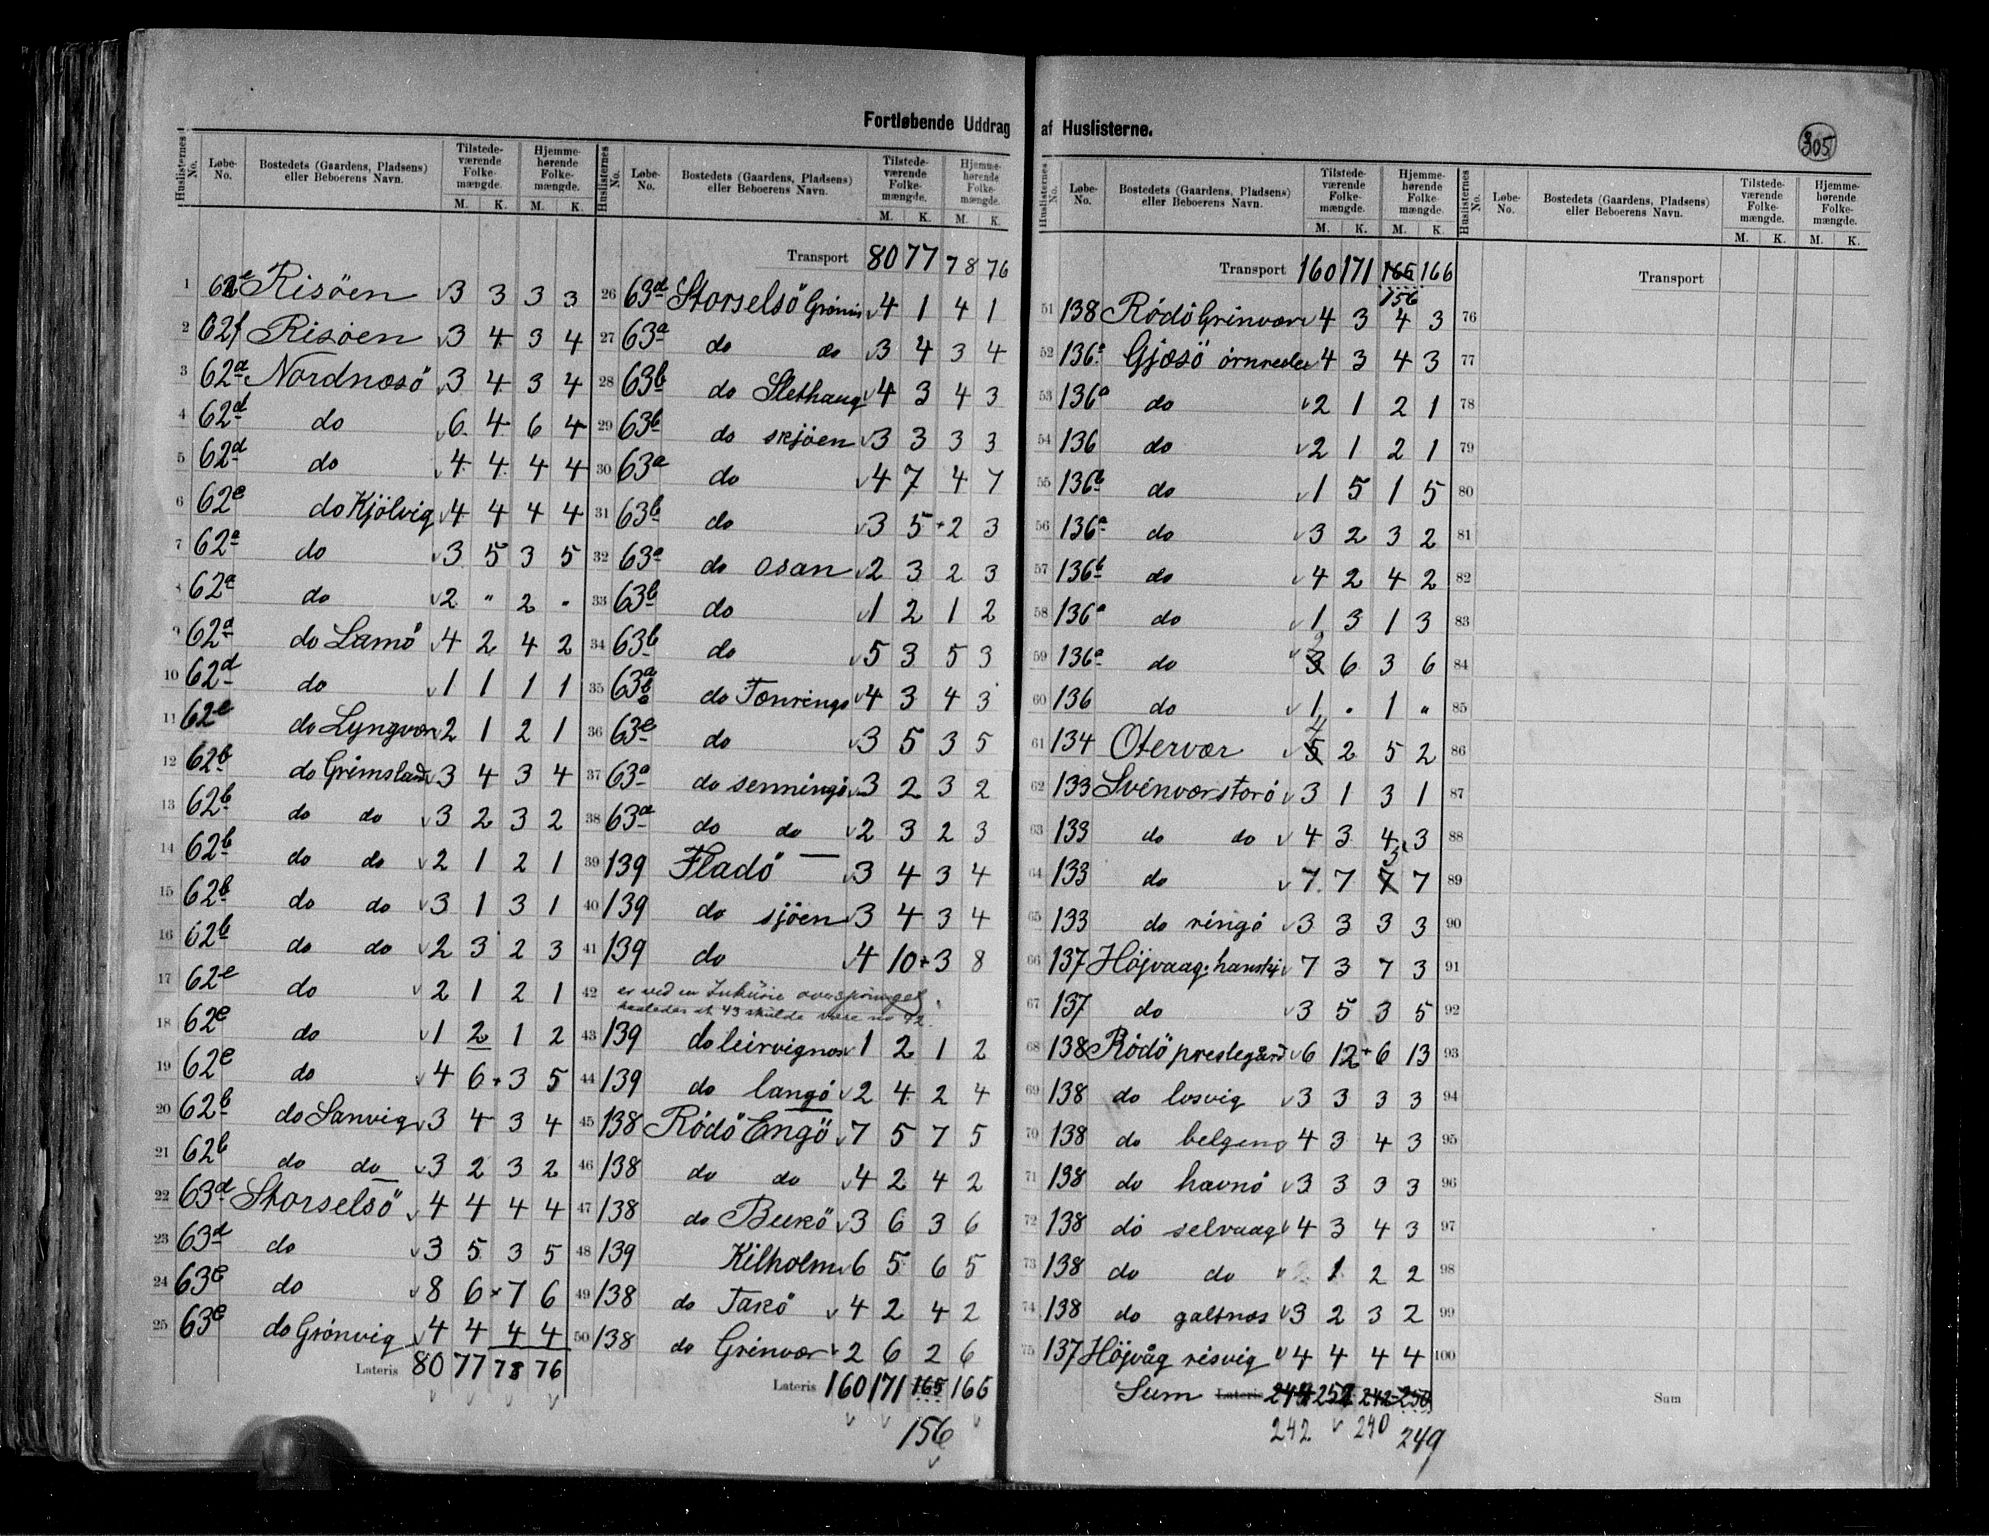 Fortløbende Uddrag af Huslisterne.
305
Huslisternes No. Løbe-No. Bostedets (Gaardens, Pladsens) eller Beboerens Navn. Tilstedeværende Folkemængde. M. K. Hjemmehørende Folkemængde. M. K.
1 62e Risöen v 3 3 3 3
2 62f Risöen v 3 4 3 4
3 62a Nordnæsö v 3 4 3 4
4 62d do v 6 4 6 4
5 62d do v 4 4 4 4
6 62e do Kjölvig v 4 4 4 4
7 62a do v 3 5 3 5
8 62a do v 2 " 2 "
9 62a do Lamö v 4 2 4 2
10 62d do v 1 1 1 1
11 62e do Lyngvær 2 1 2 1
12 62b do Grimsland v 3 4 3 4
13 62b do do v 3 2 3 2
14 62b do do v 2 1 2 1
15 62b do do v 3 1 3 1
16 62b do do v 2 3 2 3
17 62e do v 2 1 2 1
18 62e do v 1 2 1 2
19 62e do v 4 6 + 3 5
20 62b do Sanvig v 3 4 3 4
21 62b do do v 3 2 3 2
22 63d Storselsö v 4 4 4 4
23 63d do v 3 5 3 5
24 63e do v 8 6 + 7 6
25 63e do Grönvig v 4 4 4 4
Lateris 80 77 78 76
Huslisternes No. Løbe-No. Bostedets (Gaardens, Pladsens) eller Beboerens Navn. Tilstedeværende Folkemængde. M. K. Hjemmehørende Folkemængde. M. K.
Transport 80 77 78 76
26 63d Storselsö v 4 1 4 1
27 63a do do v 3 4 3 4
28 63b do Slethaug v 4 3 4 3
29 63b do skjöen v 3 3 3 3
30 63a do v 4 7 4 7
31 63b do v 3 5 + 2 3
32 63a do osan v 2 3 2 3
33 63b do v 1 2 1 2
34 63b do v 5 3 5 3
35 63a b do v 4 3 4 3
36 63e do v 3 5 3 5
37 63a do senningö v 3 2 3 2
38 63a do do v 2 3 2 3
39 139 Fladö v 3 4 3 4
40 139 do sjöen v 3 4 3 4
41 139 do v 4 10 + 3 8
42 er ved en Inkurie oversprunget
saaledes at 43 skulde være no 42.
43 139 do leirvignes v 1 2 1 2
44 139 do langö v 2 4 2 4
45 138 Rödö Engö v 7 5 7 5
46 138 do do v 4 2 4 2
47 138 do Bukö v 3 6 3 6
48 139 Kilholm v 6 5 6 5
49 138 do Taxö v 4 2 4 2
50 138 do Grinvær v 2 6 2 6
Lateris 160 171 165 166
156
Huslisternes No. Løbe-No. Bostedets (Gaardens, Pladsens) eller Beboerens Navn. Tilstedeværende Folkemængde. M. K. Hjemmehørende Folkemængde. M. K.
Transport 160 171 165 166
156
51 138 Rödö Grinvær v 4 3 4 3
52 136a Gjæsö 4 3 4 3
53 136a do v 2 1 2 1
54 136 do v 2 1 2 1
55 136b do v 1 5 1 5
56 136a do v 3 2 3 2
57 136b do v 4 2 4 2
58 136a do v 1 3 1 3
59 136a do v 3 2 6 3 6
60 136 do v 1 " 1 "
61 134 Otervær v 5 4 2 5 2
62 133 Svinværstorö v 3 1 3 1
63 133 do do v 4 3 4 3
64 133 do v 7 7 7 5 7
65 133 do ringö v 3 3 3 3
66 137 Höjvaag v 7 3 7 3
67 137 do v 3 5 3 5
68 138 Rödö prestegård v 6 12 + 6 13
69 138 do losvig v 3 3 3 3
70 138 do 4 3 4 3
71 138 do havnö v 3 3 3 3
72 138 do selvaag v 4 3 4 3
73 138 do do v 2 1 2 2
74 138 do galtnæs v 3 2 3 2
75 137 Höjvåg risvig v 4 4 4 4
Sum Lateris 244 252 242 250
242 v 240 249
Huslisternes No. Løbe-No. Bostedets (Gaardens, Pladsens) eller Beboerens Navn. Tilstedeværende Folkemængde. M. K. Hjemmehørende Folkemængde. M. K.
Transport
76
77
78
79
80
81
82
83
84
85
86
87
88
89
90
91
92
93
94
95
96
97
98
99
100
Sum